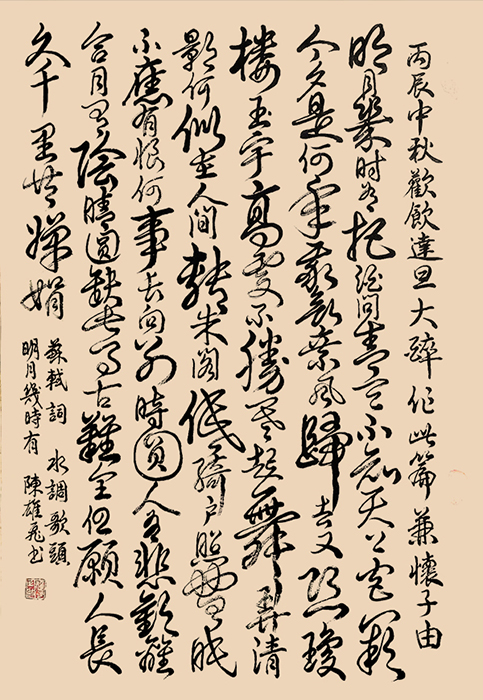 丙辰中秋歡飲達旦大醉作此篇兼懷子由
明月幾時有把酒問青天不知天上宮闕
今夕是何年我欲乘風歸去又恐瓊
樓玉宇高處不勝寒起舞弄清
影何似在人間轉朱閣低綺戶照無眠
不應有恨何事長向別時圓人有悲歡離
合月有陰晴圓缺此事古難全但願人長
久千里共嬋娟
蘇軾詞 水調歌頭
明月幾時有 陳雄飛书